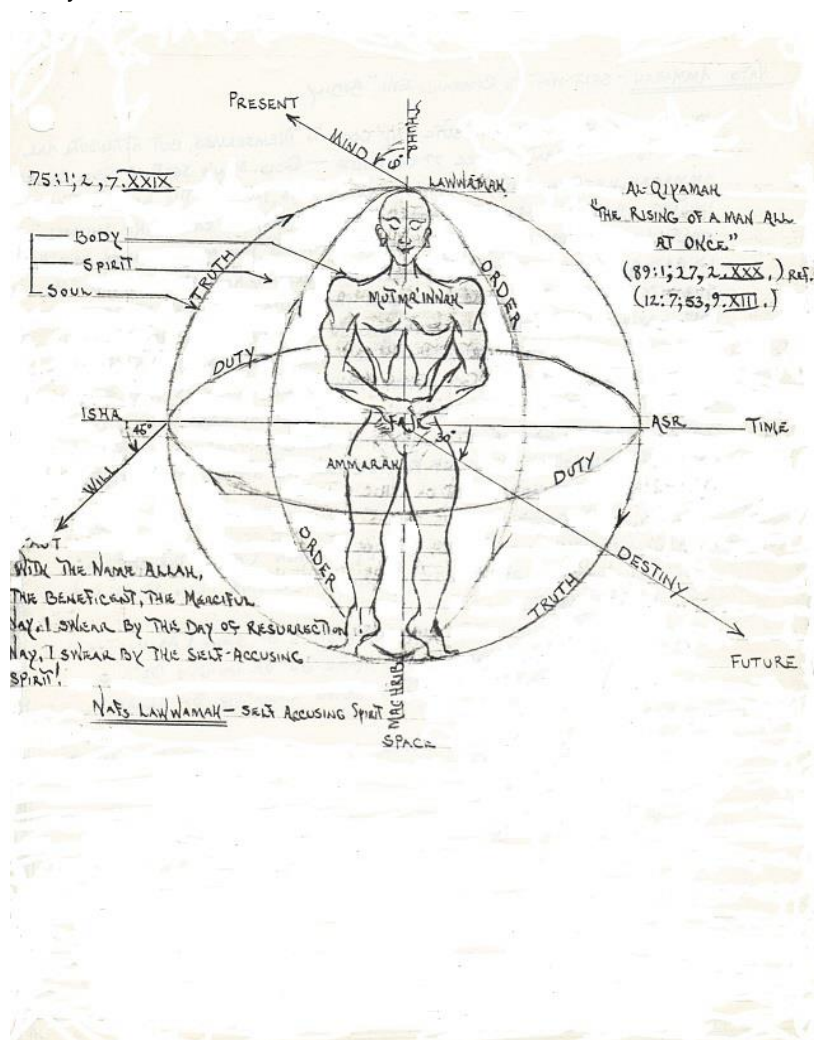 PRESENT
MIND
ZHUHR
LAWWAMAH
75:1;2,7.XXIX
AL-QIYAMAH
"THE RISING OF A MAN ALL
AT ONCE"
(89:1;27,2.XXX.) REF.
(12:7;53,9.XIII.)
BODY
SPIRIT
SOUL
TRUTH
ORDER
MUTMA'INNAH
DUTY
ISHA
FAJR
ASR
TIME
45°
30°
WILL
AMMARAH
DUTY
ORDER
TRUTH
DESTINY
FUTURE
WITH THE NAME ALLAH,
THE BENEFICENT, THE MERCIFUL
NAY, I SWEAR BY THE DAY OF RESURRECTION!
NAY, I SWEAR BY THE SELF-ACCUSING
SPIRIT!
NAFS LAWWAMAH - SELF ACCUSING SPIRIT
MAGHRIB
SPACE